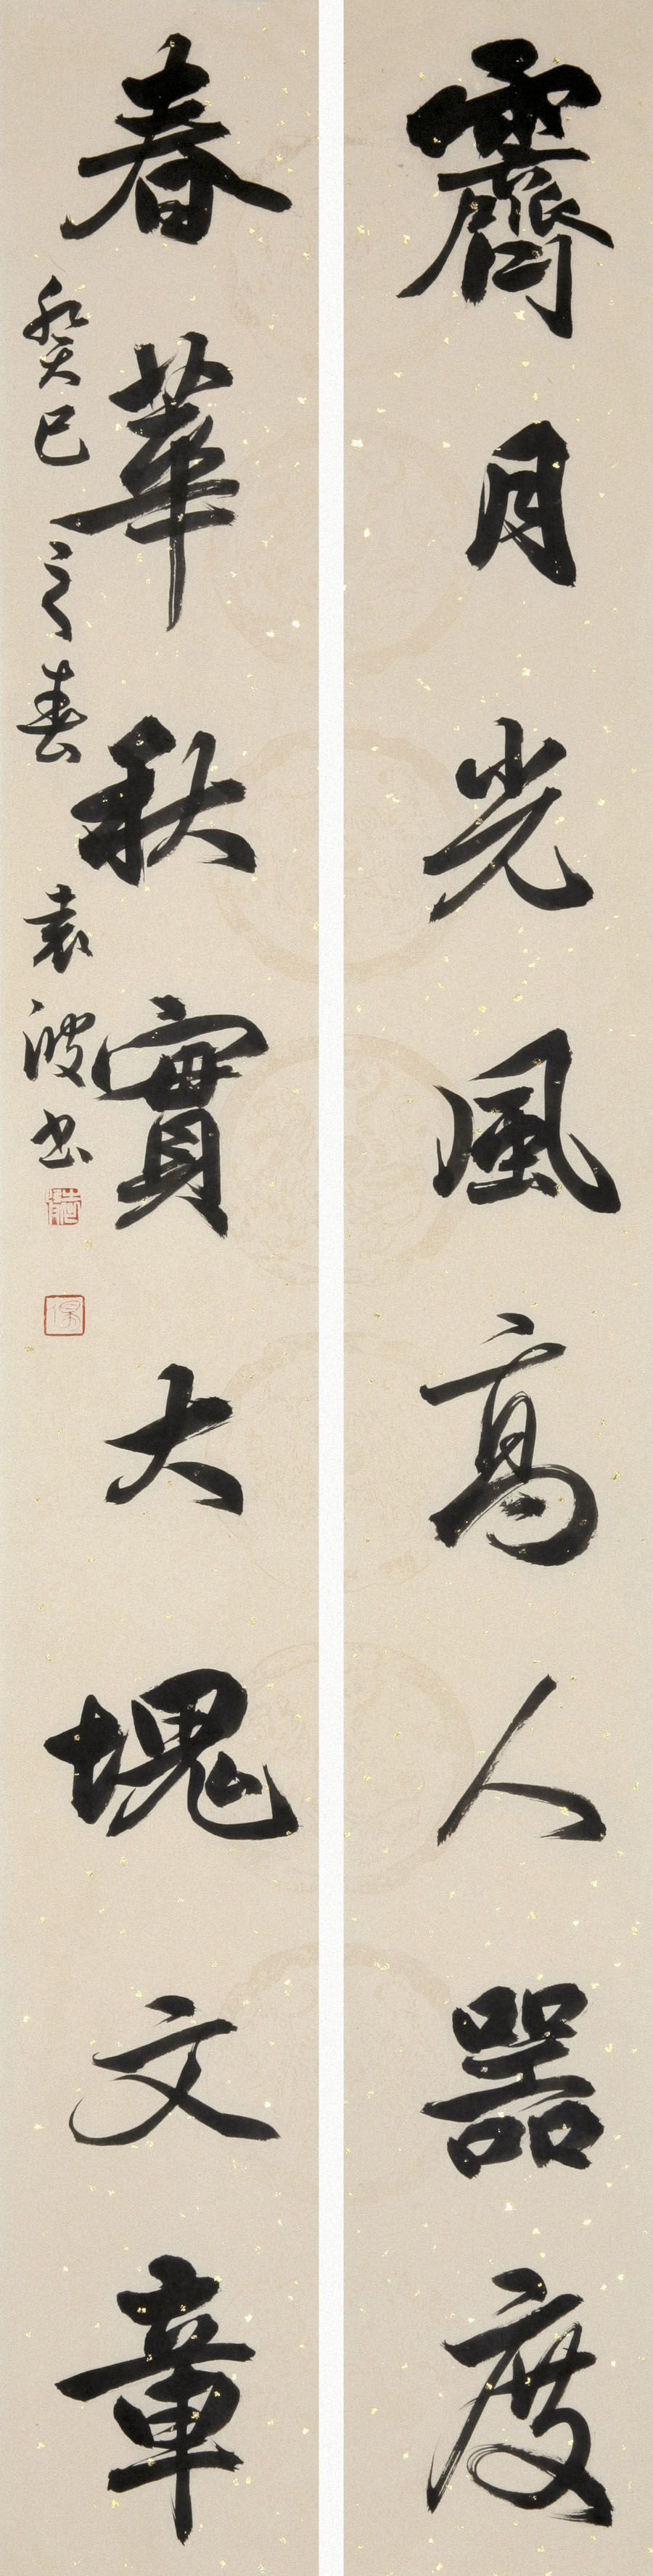 霽月光風高人器度
春華秋實大塊文章
癸巳之春 袁波书